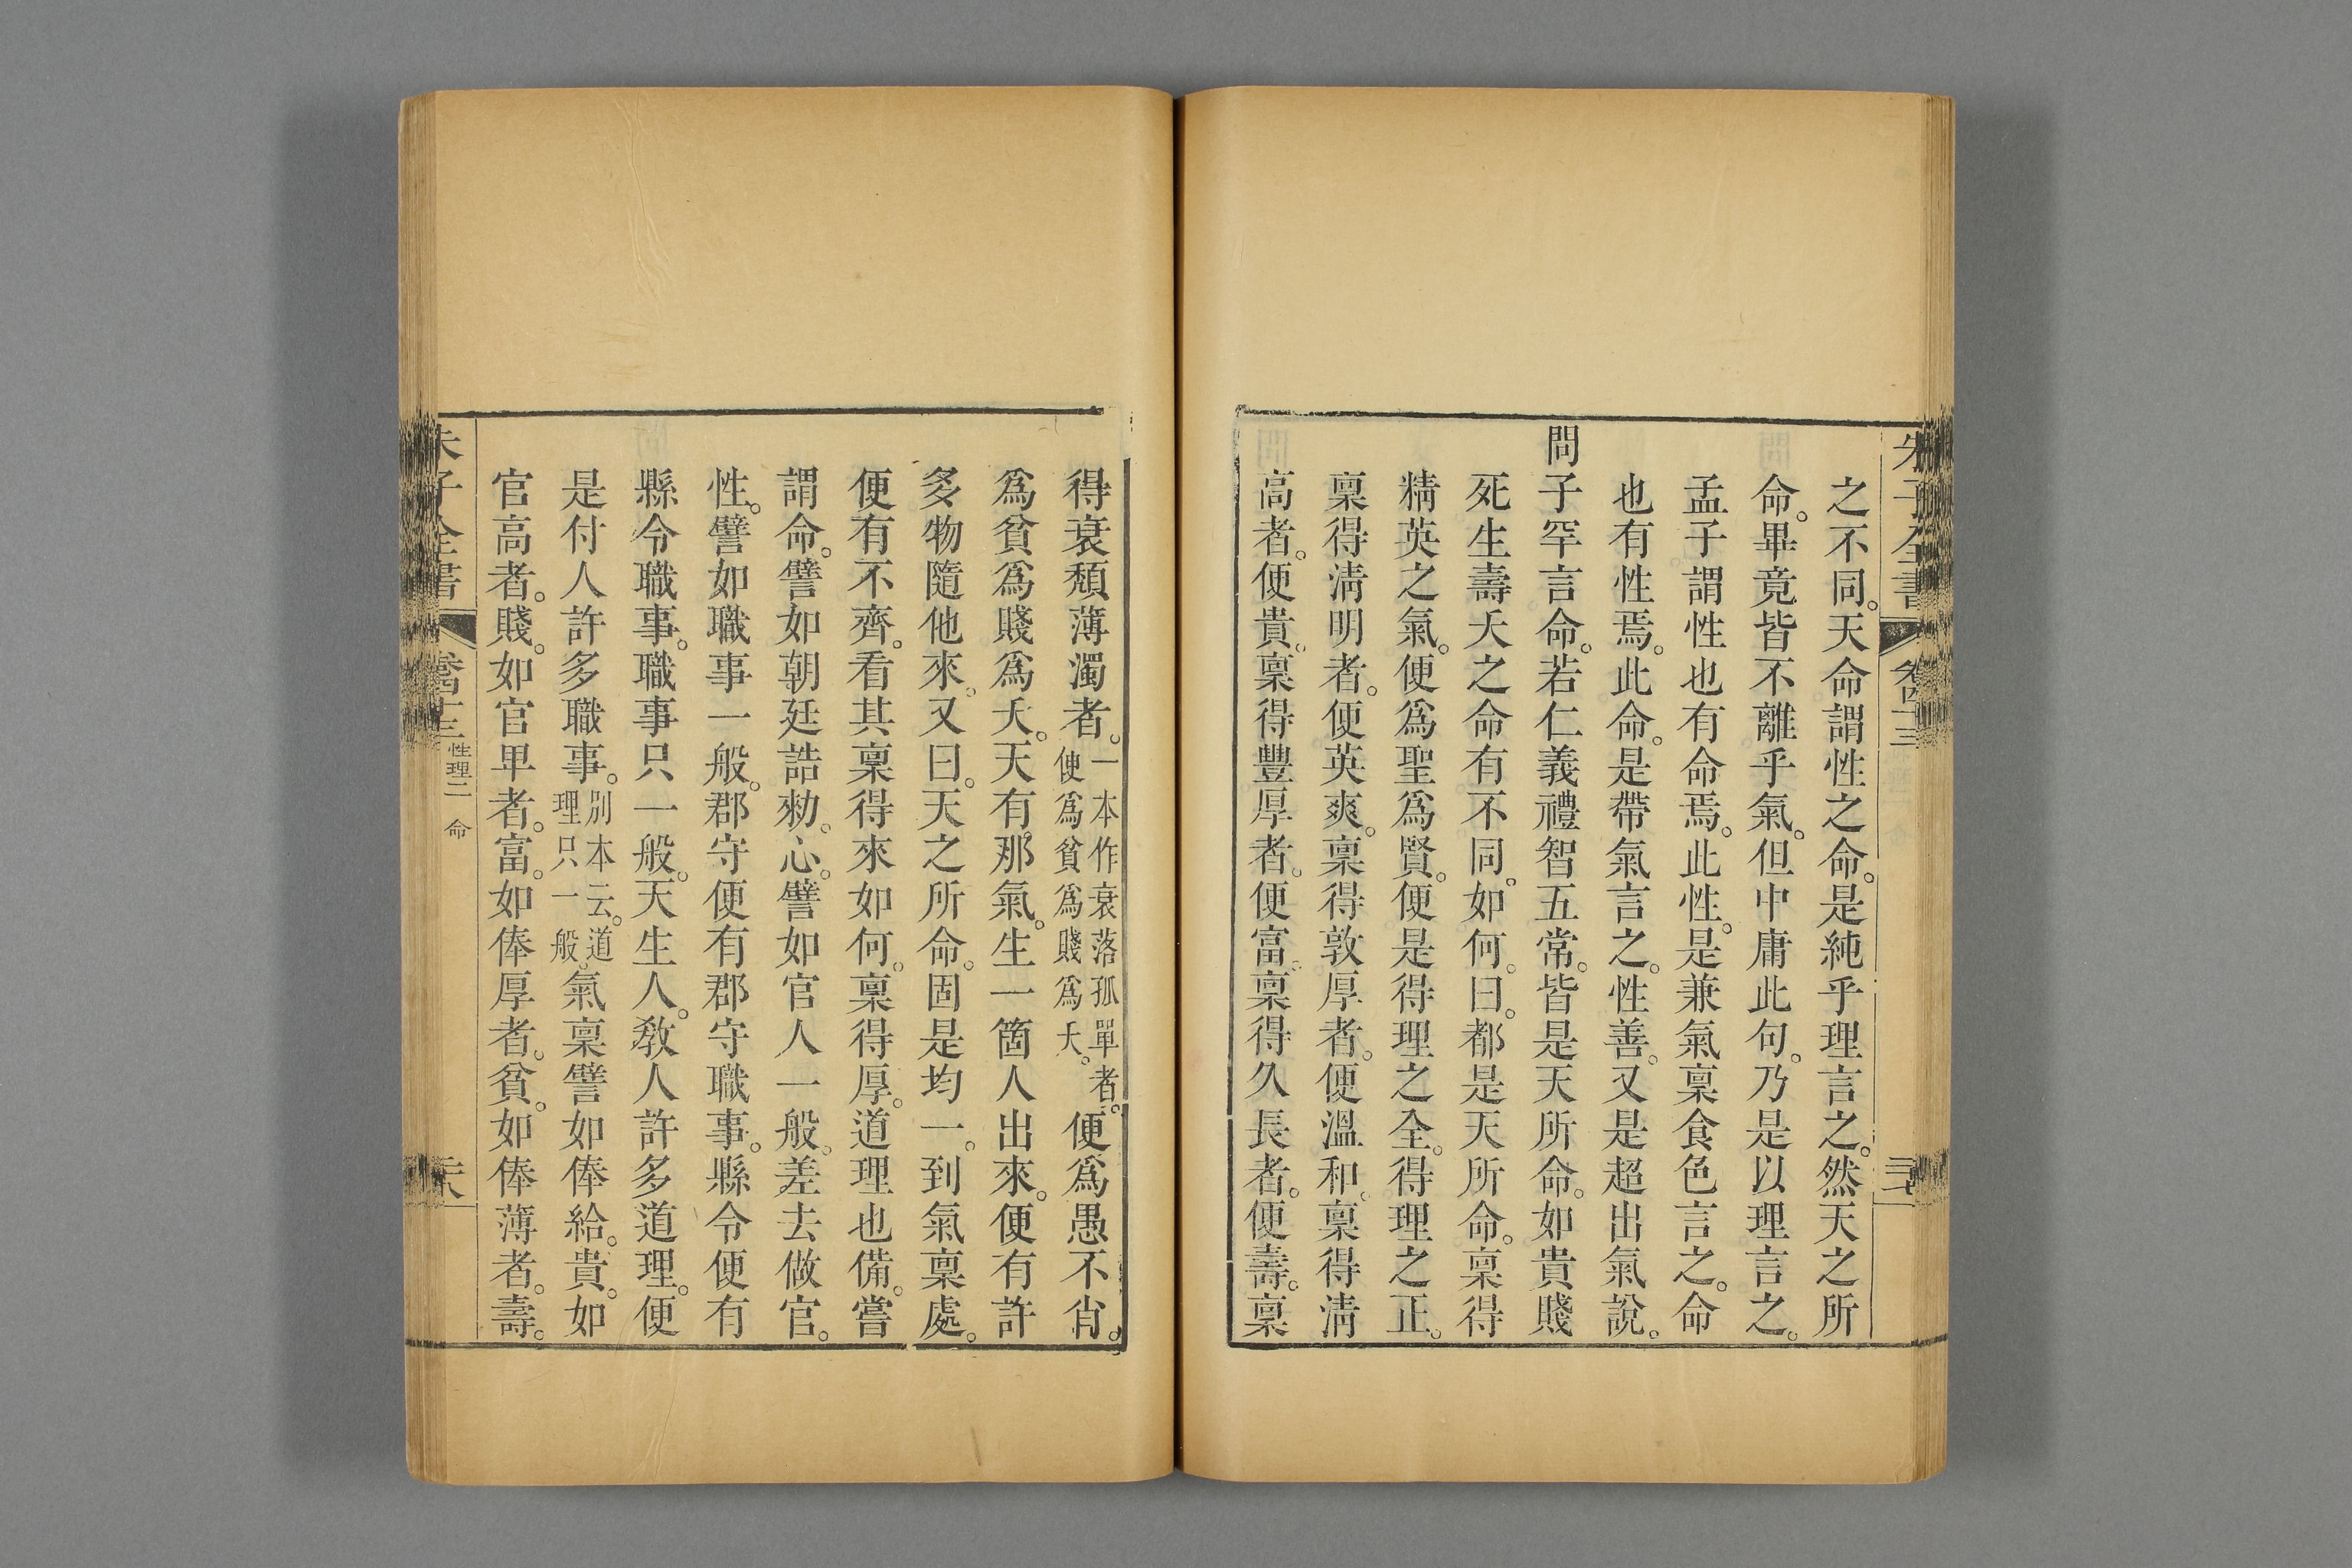 朱子全書
之不同。天命謂性之命。是純乎理言之。然天之所
命。畢竟皆不離乎氣。但中庸此句。乃是以理言之。
孟子謂性也有命焉。此性。是兼氣稟食色言之。命
也有性焉。此命。是帶氣言之。性善。又是超出氣說。
問子罕言命。若仁義禮智五常。皆是天所命。如貴賤
死生壽夭之命有不同。如何。曰。都是天所命。稟得
精英之氣。便爲聖爲賢。便是得理之全。得理之正。
稟得淸明者。便英爽。稟得敦厚者。便溫和。稟得淸
高者。便貴。稟得豐厚者。便富。稟得久長者。便壽。稟
得衰頹薄濁者。一本作衰落孤單者。便爲貧爲賤爲夭。便爲愚不肖。
爲貧爲賤爲夭。天有那氣。生一箇人出來。便有許
多物隨他來。又曰。天之所命。固是均一。到氣稟處。
便有不齊。看其稟得來如何。稟得厚。道理也備。嘗
謂命。譬如朝廷誥勅。心。譬如官人一般。差去做官。
性。譬如職事一般。郡守便有郡守職事。縣令便有
縣令職事。職事只一般。天生人。敎人許多道理。便
是付人許多職事。別本云。道理只一般。氣稟譬如俸給。貴。如
官高者。賤。如官卑者。富。如俸厚者。貧。如俸薄者。壽。
朱子全書
性理二 命